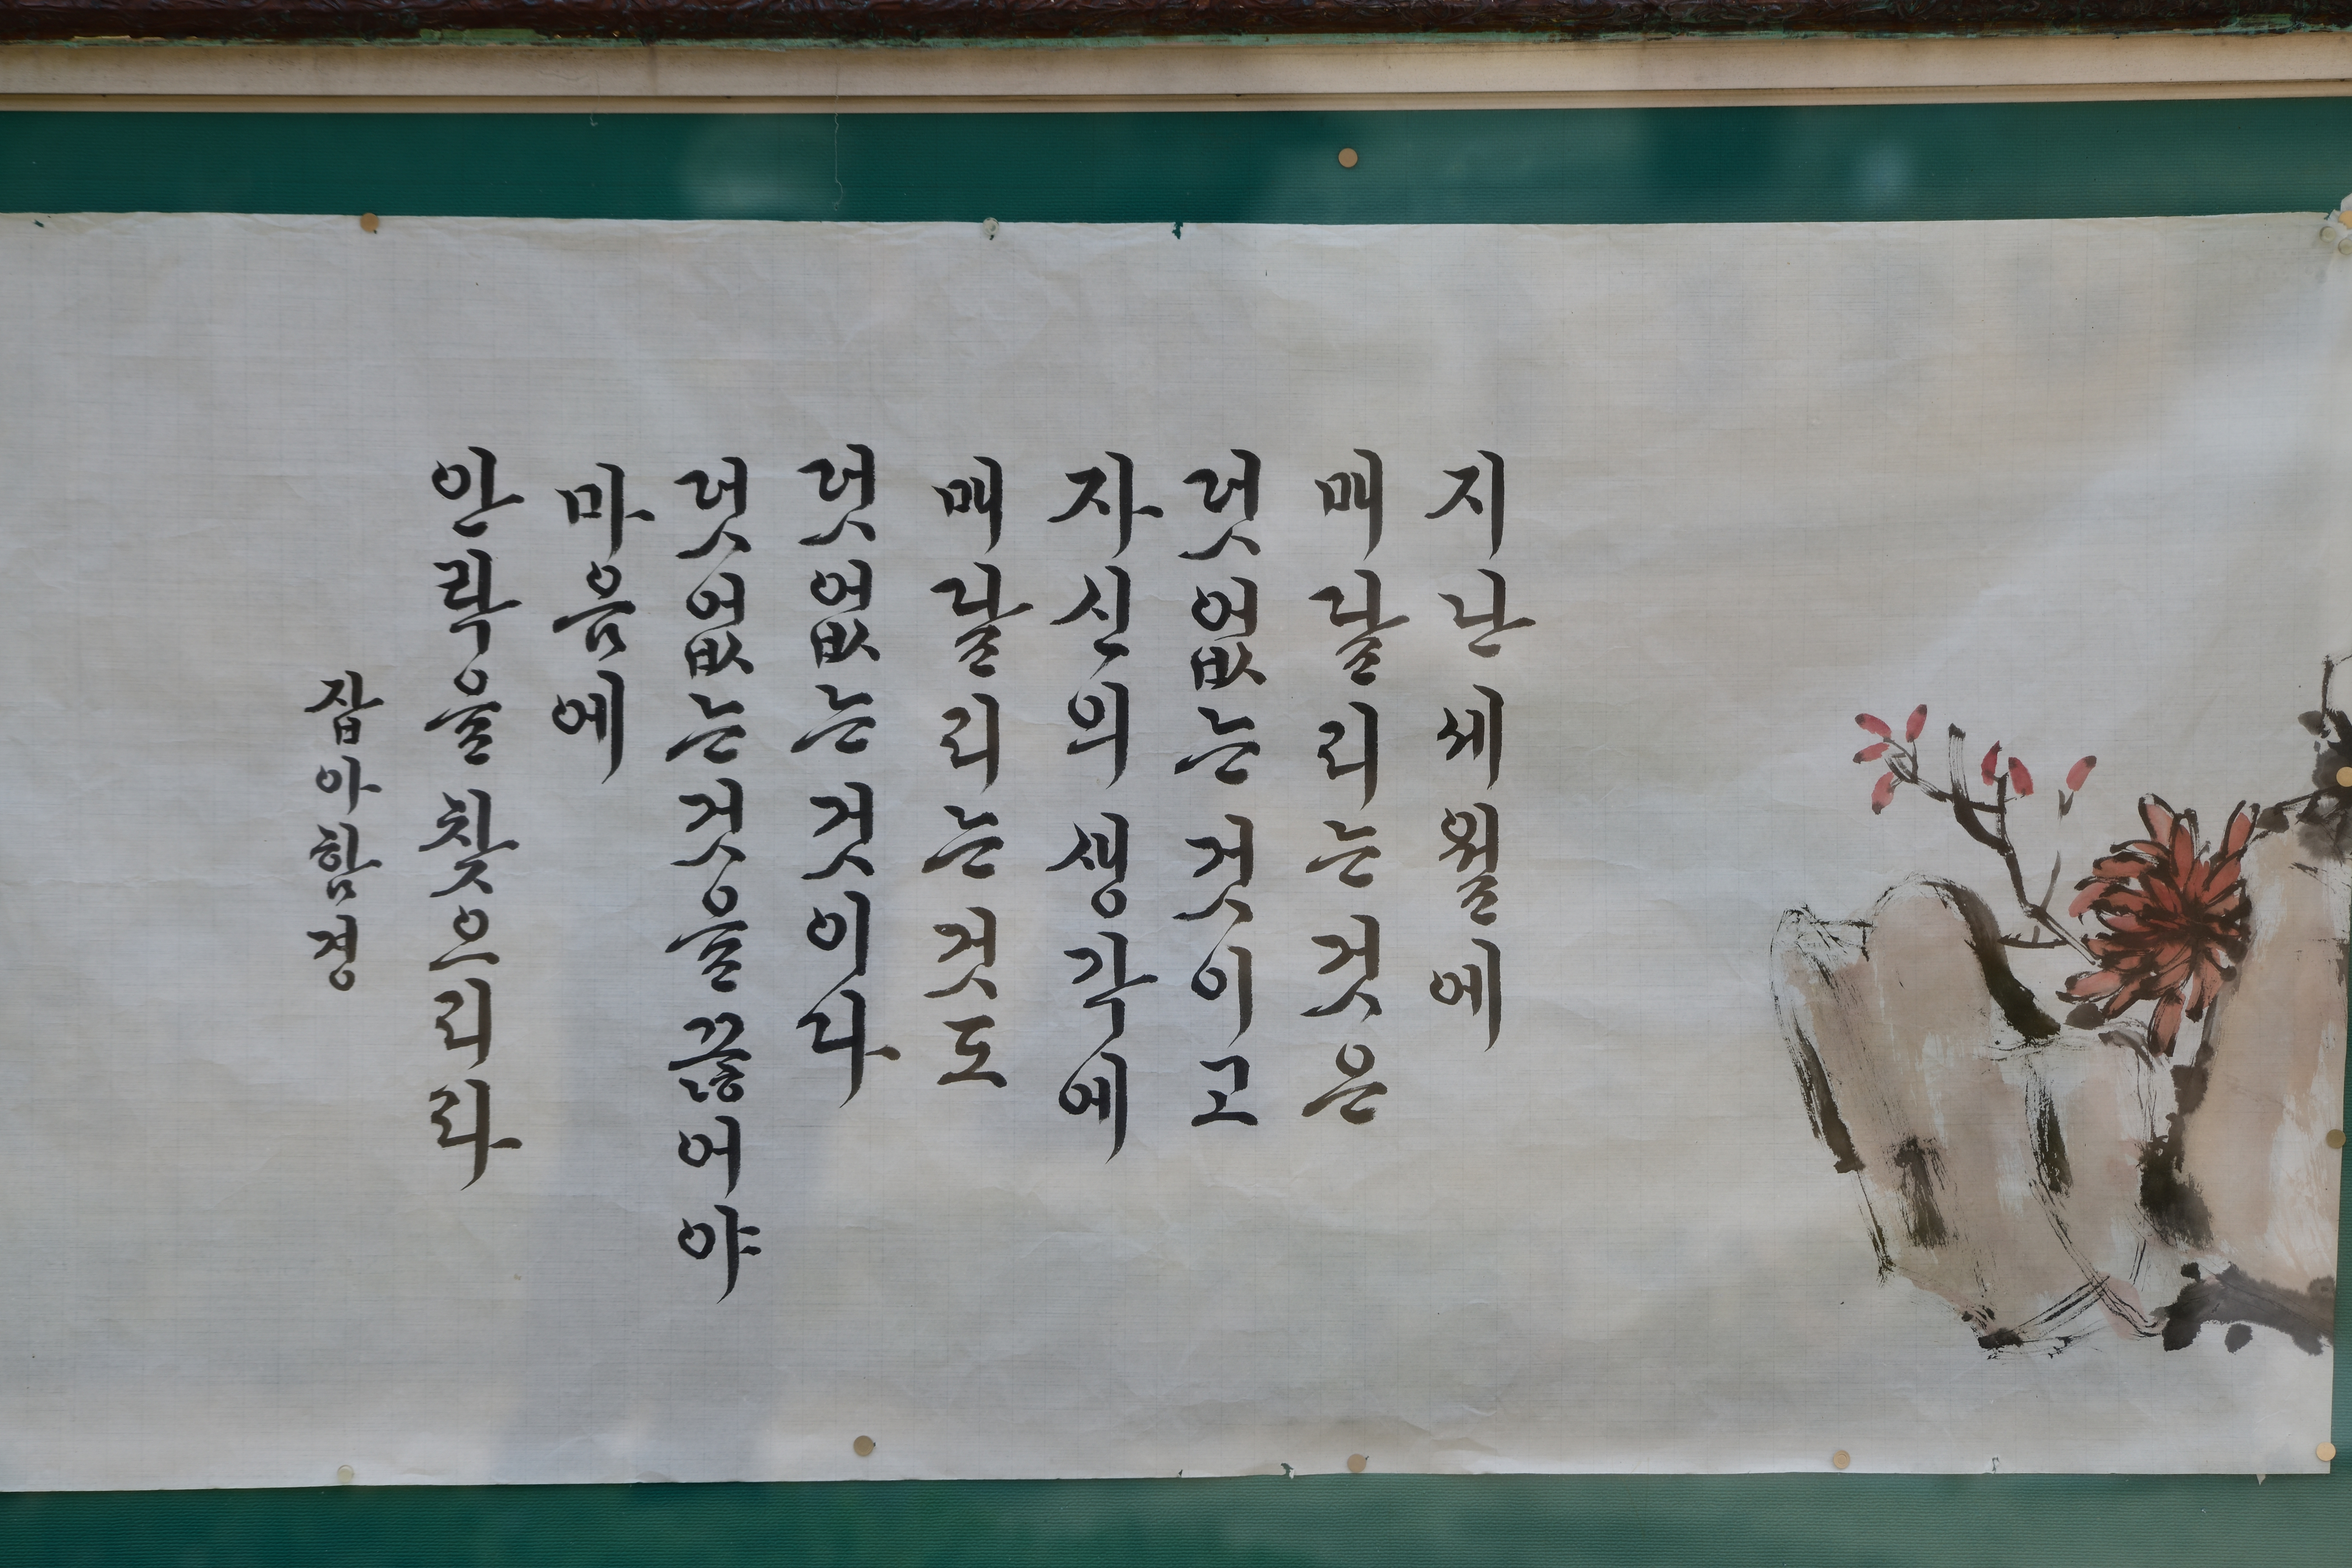 지난 세월에
매달리는 것은
덧없는 것이고
자신의 생각에
매달리는 것도
덧없는 것이다
덧없는것을 끊어야
마음에
안락을 찾으리라
잡아함경